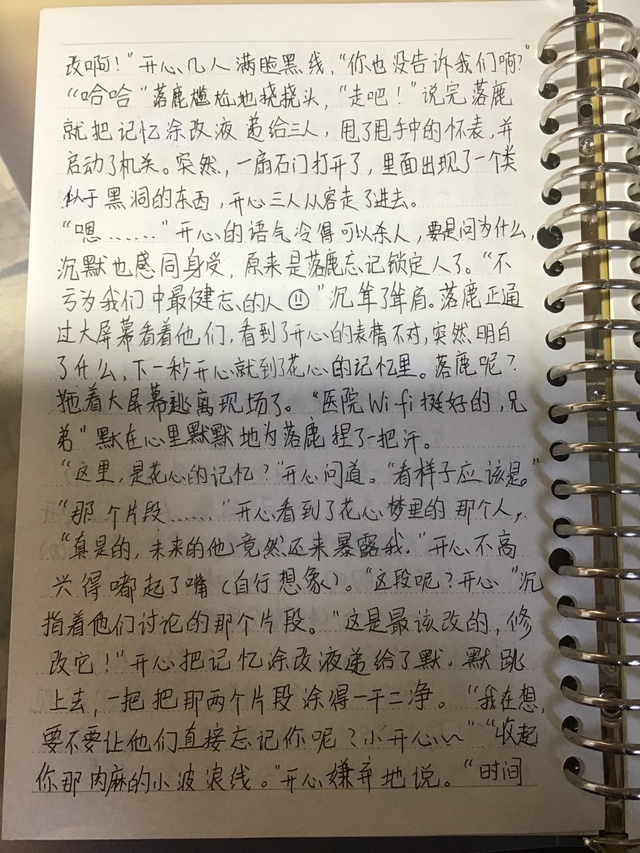 改啊！”开心几人满脸黑线，“你也没告诉我们啊？”
“哈哈”落鹿尴尬地挠挠头，“走吧！”说完落鹿
就把记忆涂改液递给三人，甩了甩手中的怀表，并
启动了机关。突然，一扇石门打开了，里面出现了一个类
似于黑洞的东西，开心三人从容走了进去。
“嗯……”开心的语气冷得可以杀人，要是问为什么，
沉默也感同身受，原来是落鹿忘记锁定人了。“不
亏为我们中最健忘的人”沉耸了耸肩。落鹿正通
过大屏幕看着他们，看到了开心的表情不对，突然明白
了什么，下一秒开心就到了花心的记忆里。落鹿呢？
拖着大屏幕逃离现场了。“医院Wi-fi挺好的，兄
弟”默在心里默默地为落鹿捏了一把汗。
“这里，是花心的记忆？”开心问道。“看样子应该是。”
“那个片段……”开心看到了花心梦里的那个人，
“真是的，未来的他竟然还来暴露我。”开心不高
兴得嘟起了嘴（自行想象）。“这段呢？开心”沉
指着他们讨论的那个片段。“这是最该改的，修
改它！”开心把记忆涂改液递给了默．默跳
上去，一把把那两个片段涂得一干二净。“我在想，
要不要让他们直接忘记你呢？小开心～”“收起
你那肉麻的小波浪线。”开心嫌弃地说。“时间